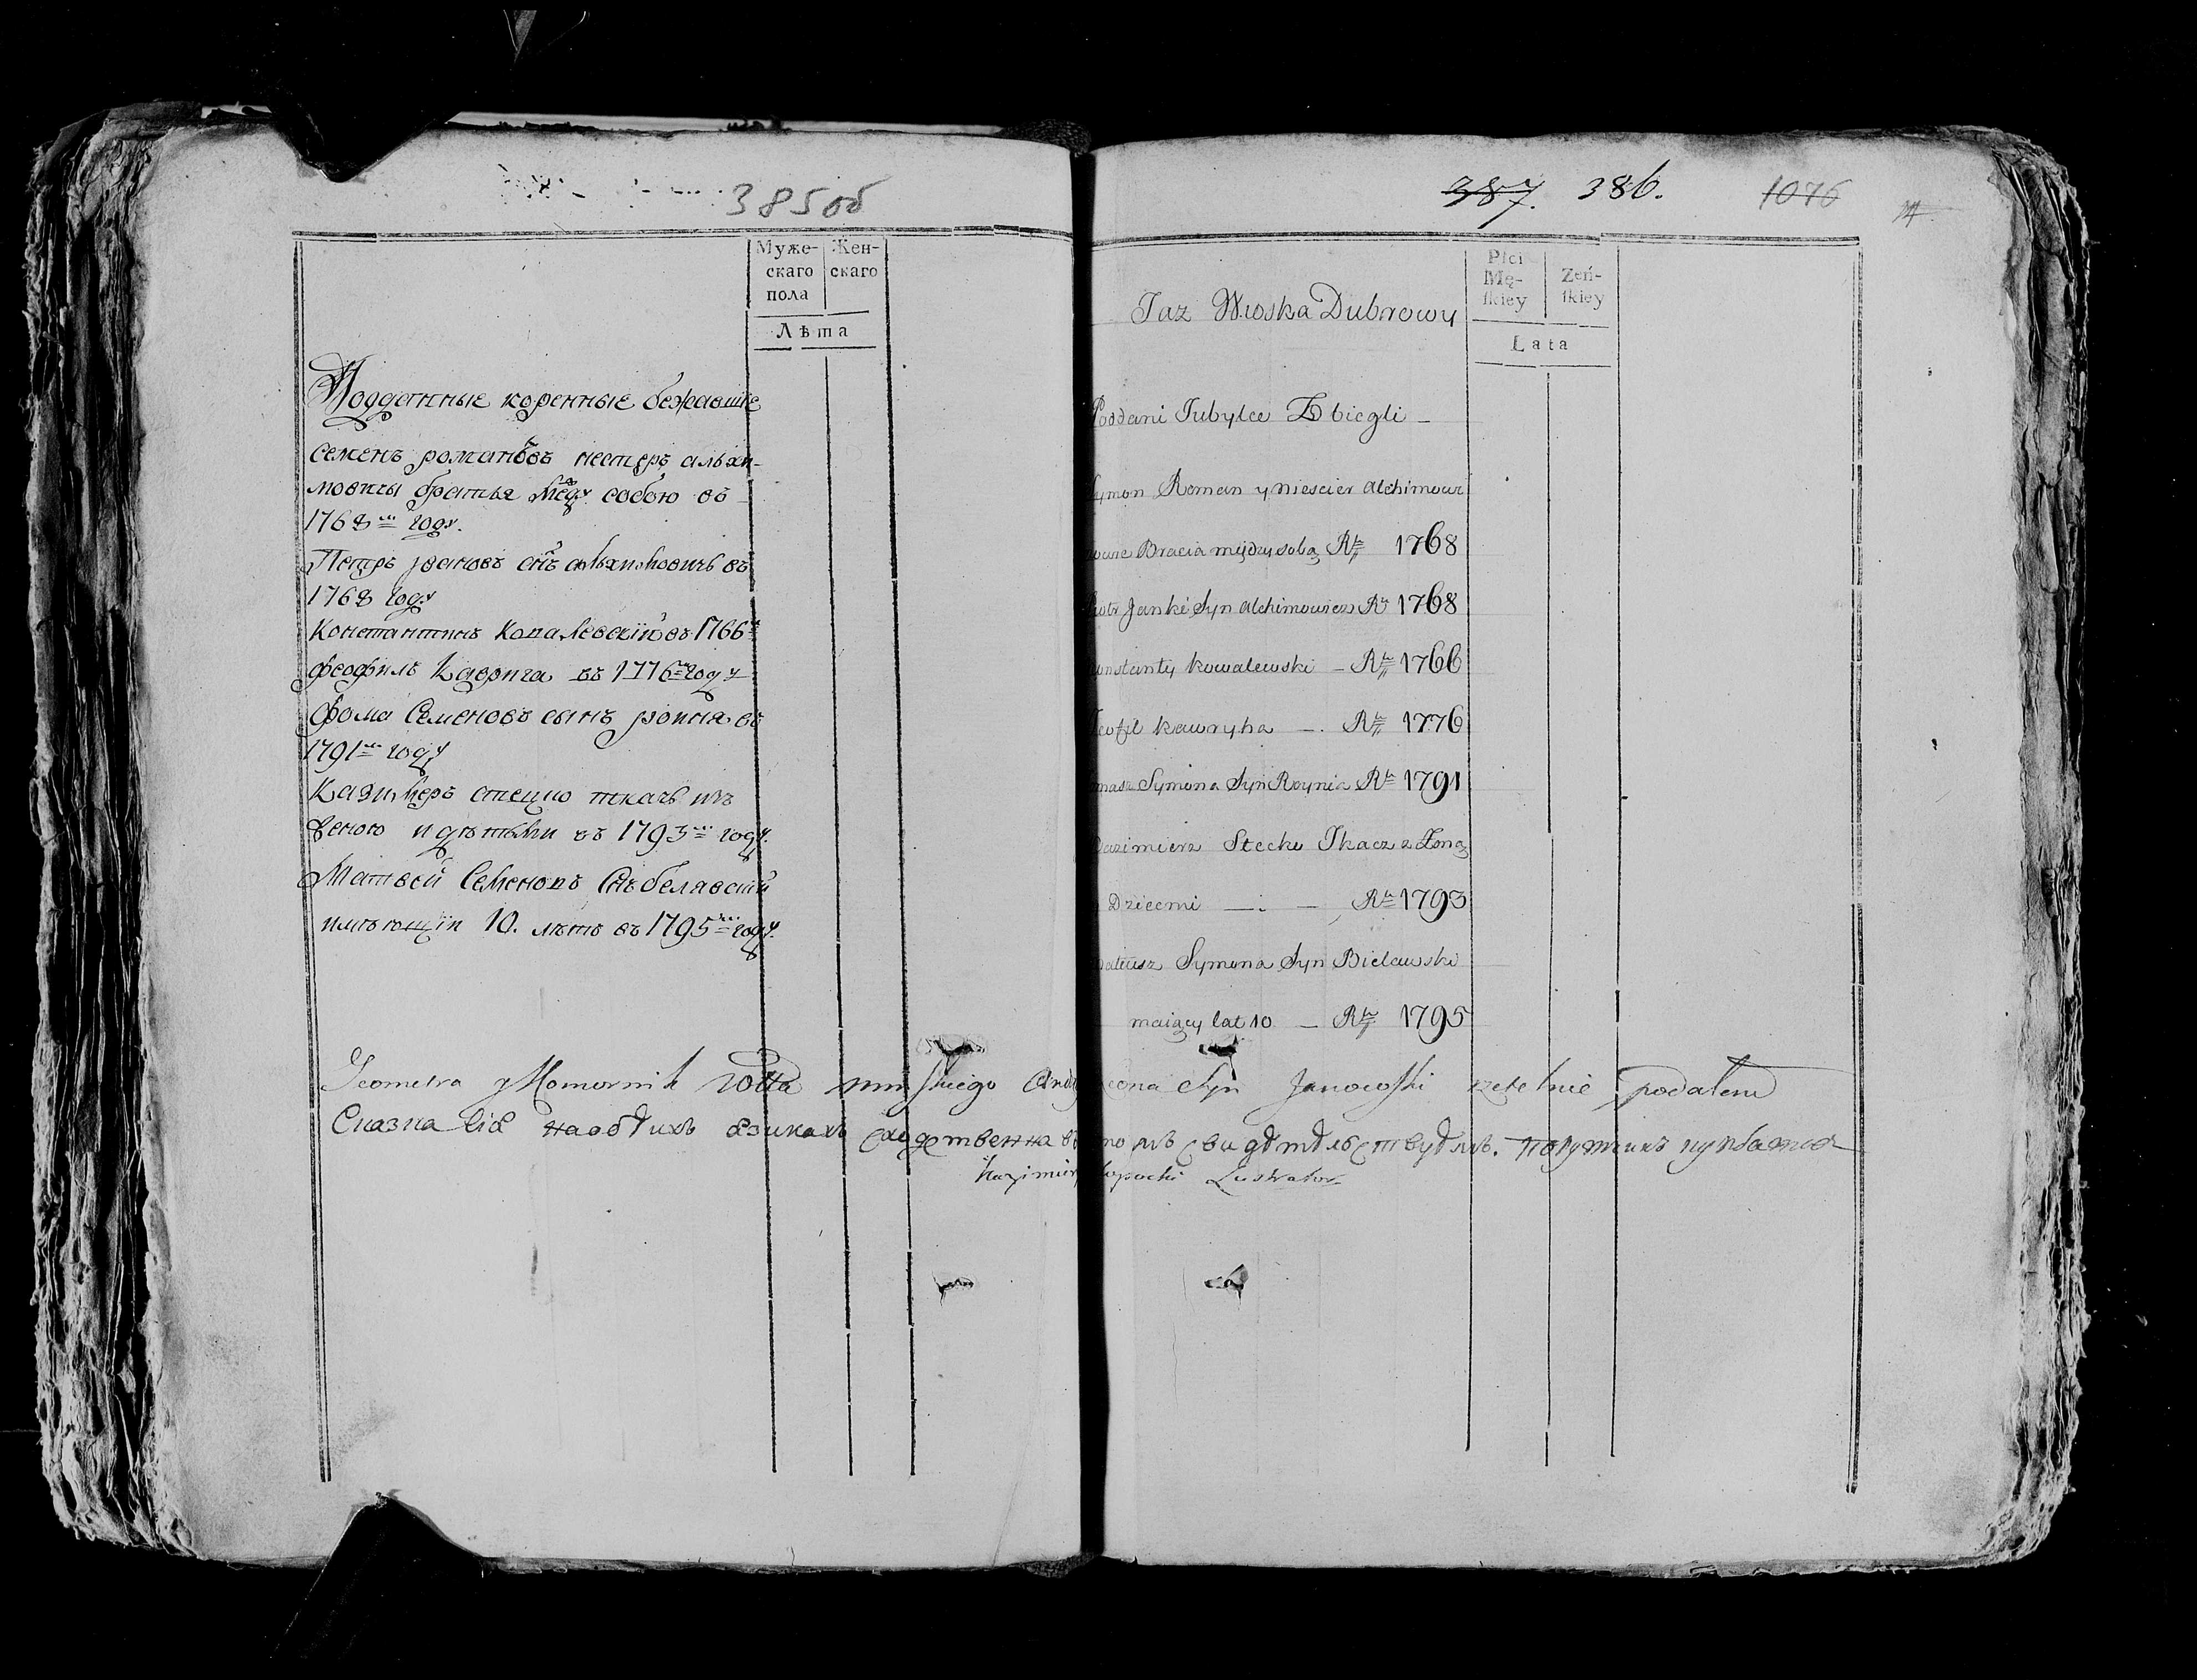 385об
Муже-
скаго
пола
Жен-
скаго
Лѣта
Подданные коренные бежавшіе
семенъ романъ нестеръ альхи-
мовичы братья собою въ
1768м году.
Петръ ивановъ снъ альхимовичъ въ
1768 году
Константинъ Ковалевскій въ 1766м
феофилъ Каврига въ 1776м году
фома Семеновъ сынъ роиня въ
1791м году
Казимеръ стецко ткачъ изъ
женою и дѣтьми въ 1793м году.
Матвей Семеновъ Снъ белявский
имѣющій 10. лѣтъ въ 1795м году.
387. 386. 1076
Taż Wioska Dubrowy
Płci
Mę-
skiey
Żeń-
skiey
Lata
Poddani Tubylce Zbiegli
ymon Roman y niescier Alchimowi
Bracia między sobą Rku 1768
iotr Janki Syn Alchimowicz Rku 1768
onstanty Kowalewski – Rku 1766
eofil Kawryha – Rku 1776
masz Symona Syn Roynia Rku 1791
azimierz Stecko Tkacz z Żoną
Dziecmi – Rku 1793
ateusz Symona Syn Bielawski
maiący lat 10 – Rku 1795
Geometra y Komornik minskiego And eona Syn Janowski rzetelnie podałem
Сказка сія на обѣихъ языкахъ сходственна въ томъ свидѣтѣльствуѣмъ.
Kazimierz Lustrator